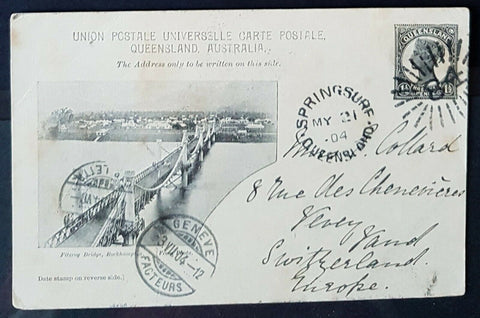 UNION POSTALE UNIVERSELLE CARTE POSTALE,
QUEENSLAND, AUSTRALIA,
The Address only to be written on this side.
QUEENSLAND
SPRINGSURE
MY 21
04
QUEENSLAND
Collard
8 Rue des Chenevières
Vevey Vaud
Switzerland.
Europe.
GENEVE
FACTEURS
Fitzroy Bridge,
Date stamp on reverse side.)